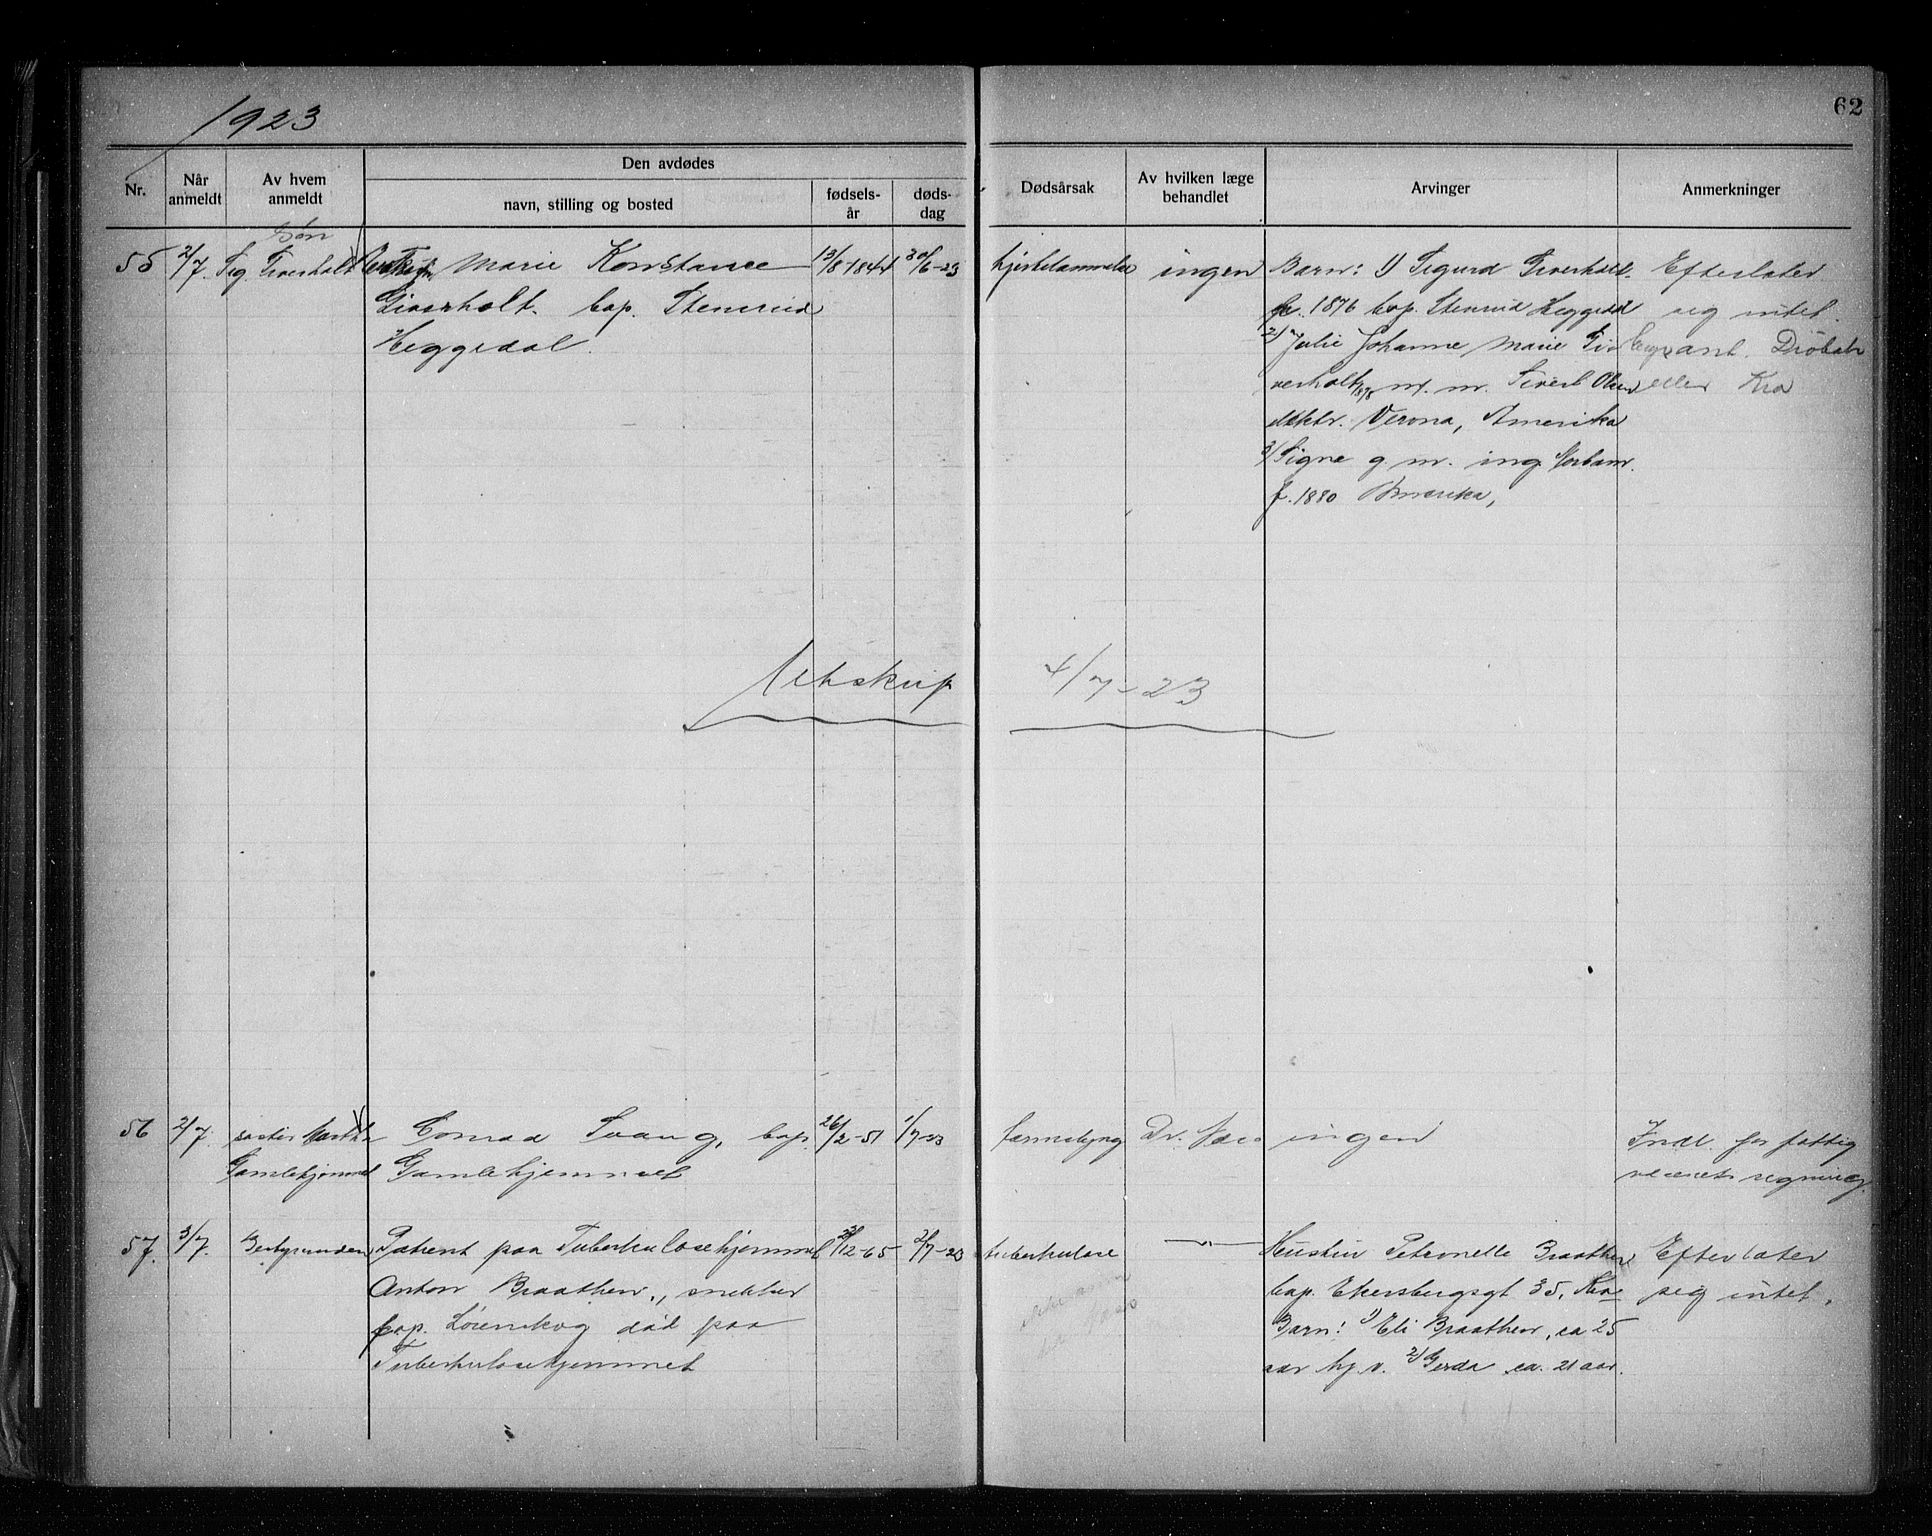 1923
62
Nr.
Når anmeldt
Av hvem anmeldt
Den avdødes
navn, stilling og bosted
fødsels-år
døds-dag
Dødsårsak
Av hvilken læge behandlet
Arvinger
Anmerkninger
søn
55 2/7. Sig. Giverholt Marie Konstance 13/8 1844 30/6-23
Giverholt. bop. Stenrud
Heggedal.
hjertelammelse ingen
Barn: 1) Sigurd Giverholt.
f. 1876 bop. Stenrud Heggedal
2) Julie Johanne Marie Gi
verholt 1878 m. Sivert Olsen
Verona, Amerika
3/ Signe g m. ing.
f. 1880 Amerika,
Efterlater
sig intet.
ant. Drøbak
eller Kra
Utskrift 4/7-23
56 2/7. søster Martha Conrad Svang, bop. 26/2-51 1/7-23
Gamlehjemmet Gamlehjemmet
Dr. ingen
Indl. for fattig
væsenets regning.
57. 3/7. Bestyrerinden Patient paa Tuberkulosehjemmet 12-65 2/7-23
Anton Braathen, snekker
bop. Lørenskog død paa
Tuberkulosehjemmet
tuberkulose —"—
Hustru Petronelle Braathen
bop. Ekersbergsgt 35, Kra
Barn: 1) Eli Braathen, ca 25
aar hj. v. 2) Gerda ca. 21 aar.
Efterlater
sig intet.